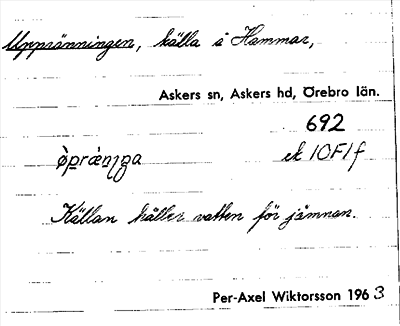 Uppränningen, källa i Hammar,
Askers sn, Askers hd, Örebro län.
692
ek 10F1f
Källan håller vatten för jämnan.
Per-Axel Wiktorsson 1963